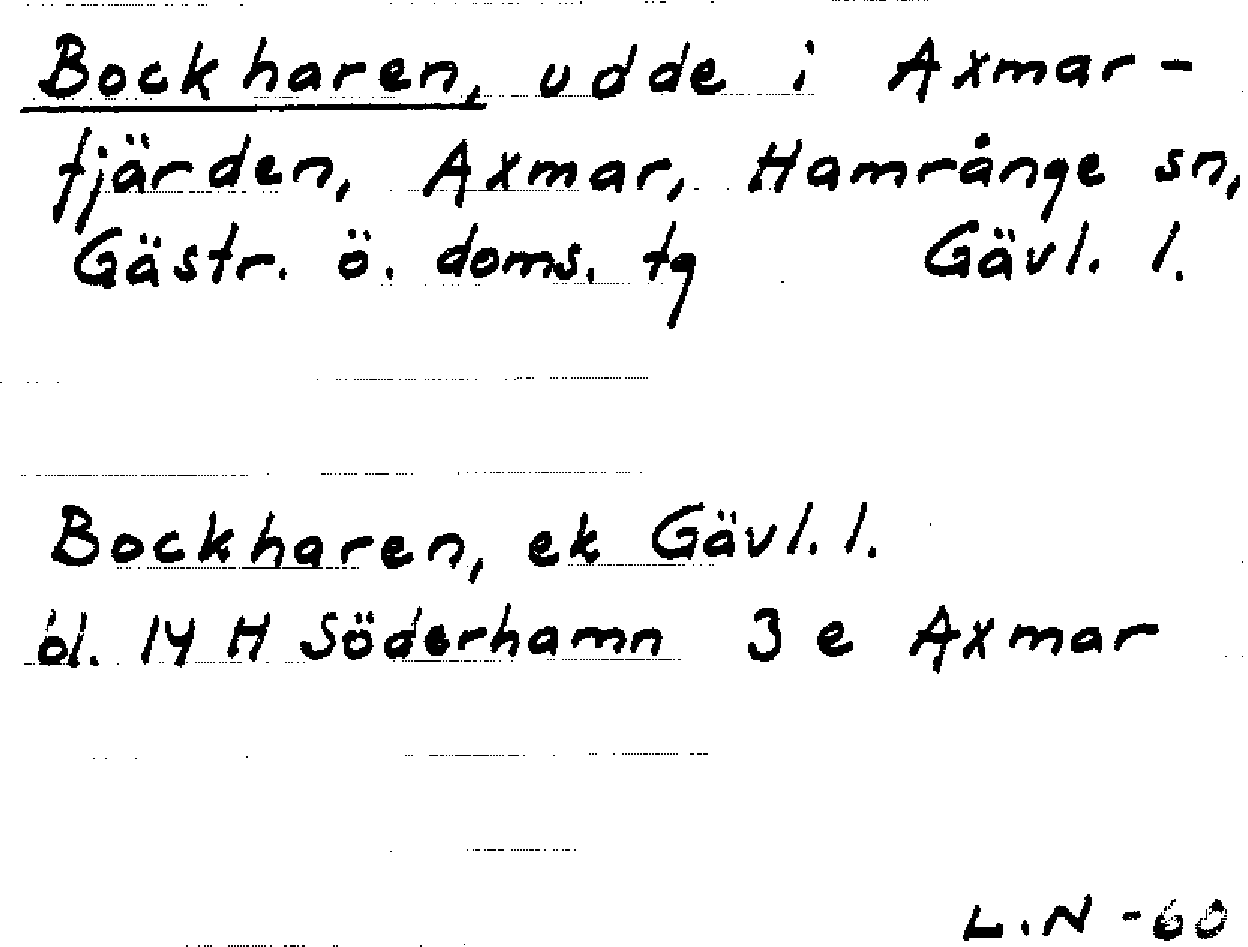 Bockharen, udde i Axmar-
fjärden, Axmar, Hamrånge sn,
Gästr. ö. doms. tg Gävl. l.
Bockharen, ek Gävl. l.
bl. 14 H Söderhamn 3 e Axmar
L.N -60